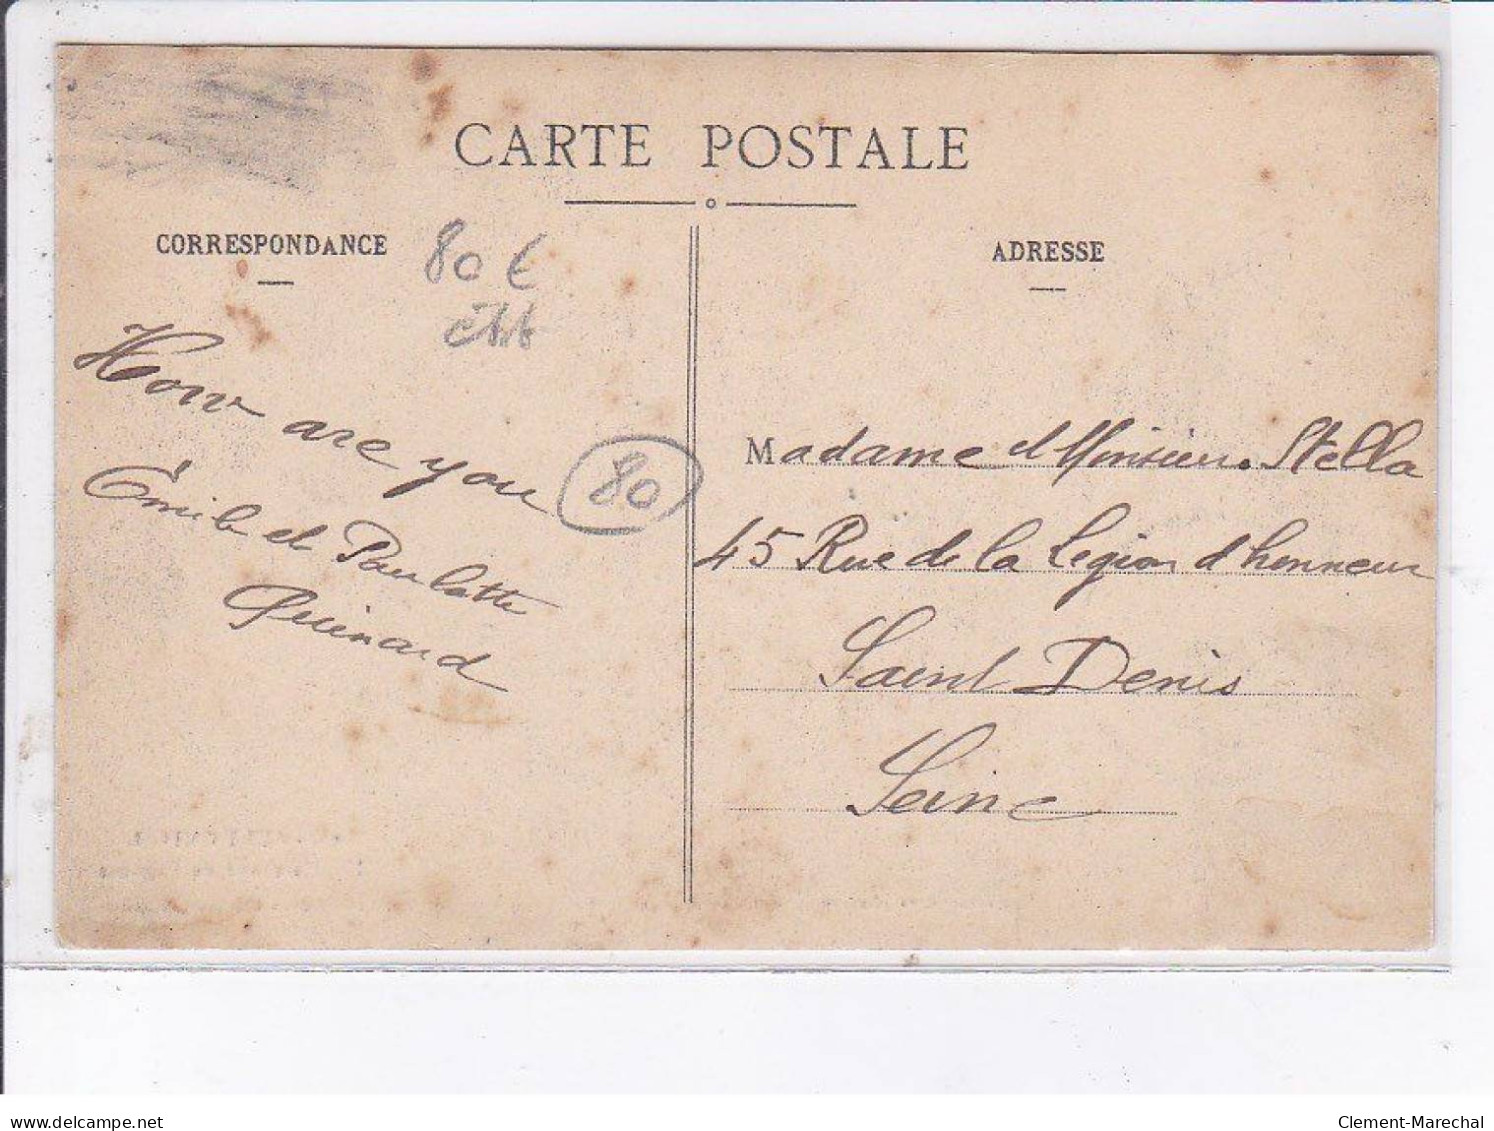 CARTE POSTALE
CORRESPONDANCE
80 €
How are you
Émile et Paulette
Guinard
80
ADRESSE
Madame et Monsieur Stella
45 Rue de la Legion d'honneur
Saint Denis
Seine
delcampe.net
Clement-Marechal